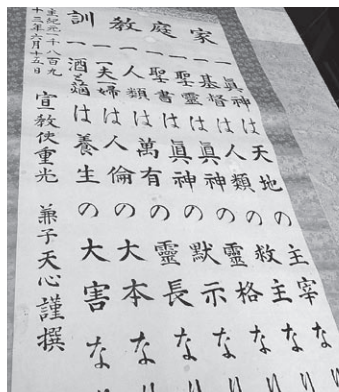 家庭教訓
一眞神は天地の主宰なり
一基督は人類の救主なり
一聖靈は眞神の靈格なり
一聖書は眞神の默示なり
一人類は萬有の靈長なり
一夫婦は人倫の大本なり
一酒とは養生の大害なり
主紀元一千八百九
十三年六月十五日
宣教使重光 兼子天心謹撰